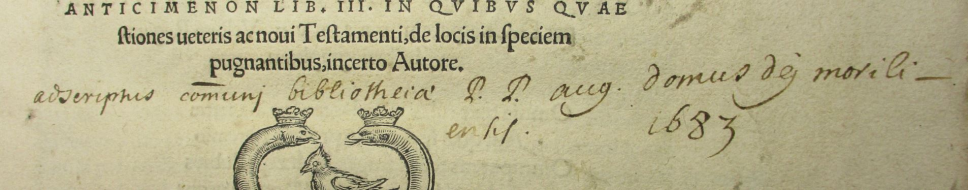 ANTICIMENON LIB. III. IN QVIBVS QVAE
stiones ueteris ac noui Testamenti, de locis in speciem
pugnantibus, incerto Autore.
adscriptus comunj bibliothecæ P. P. aug. domus dej morili-
ensis. 1683